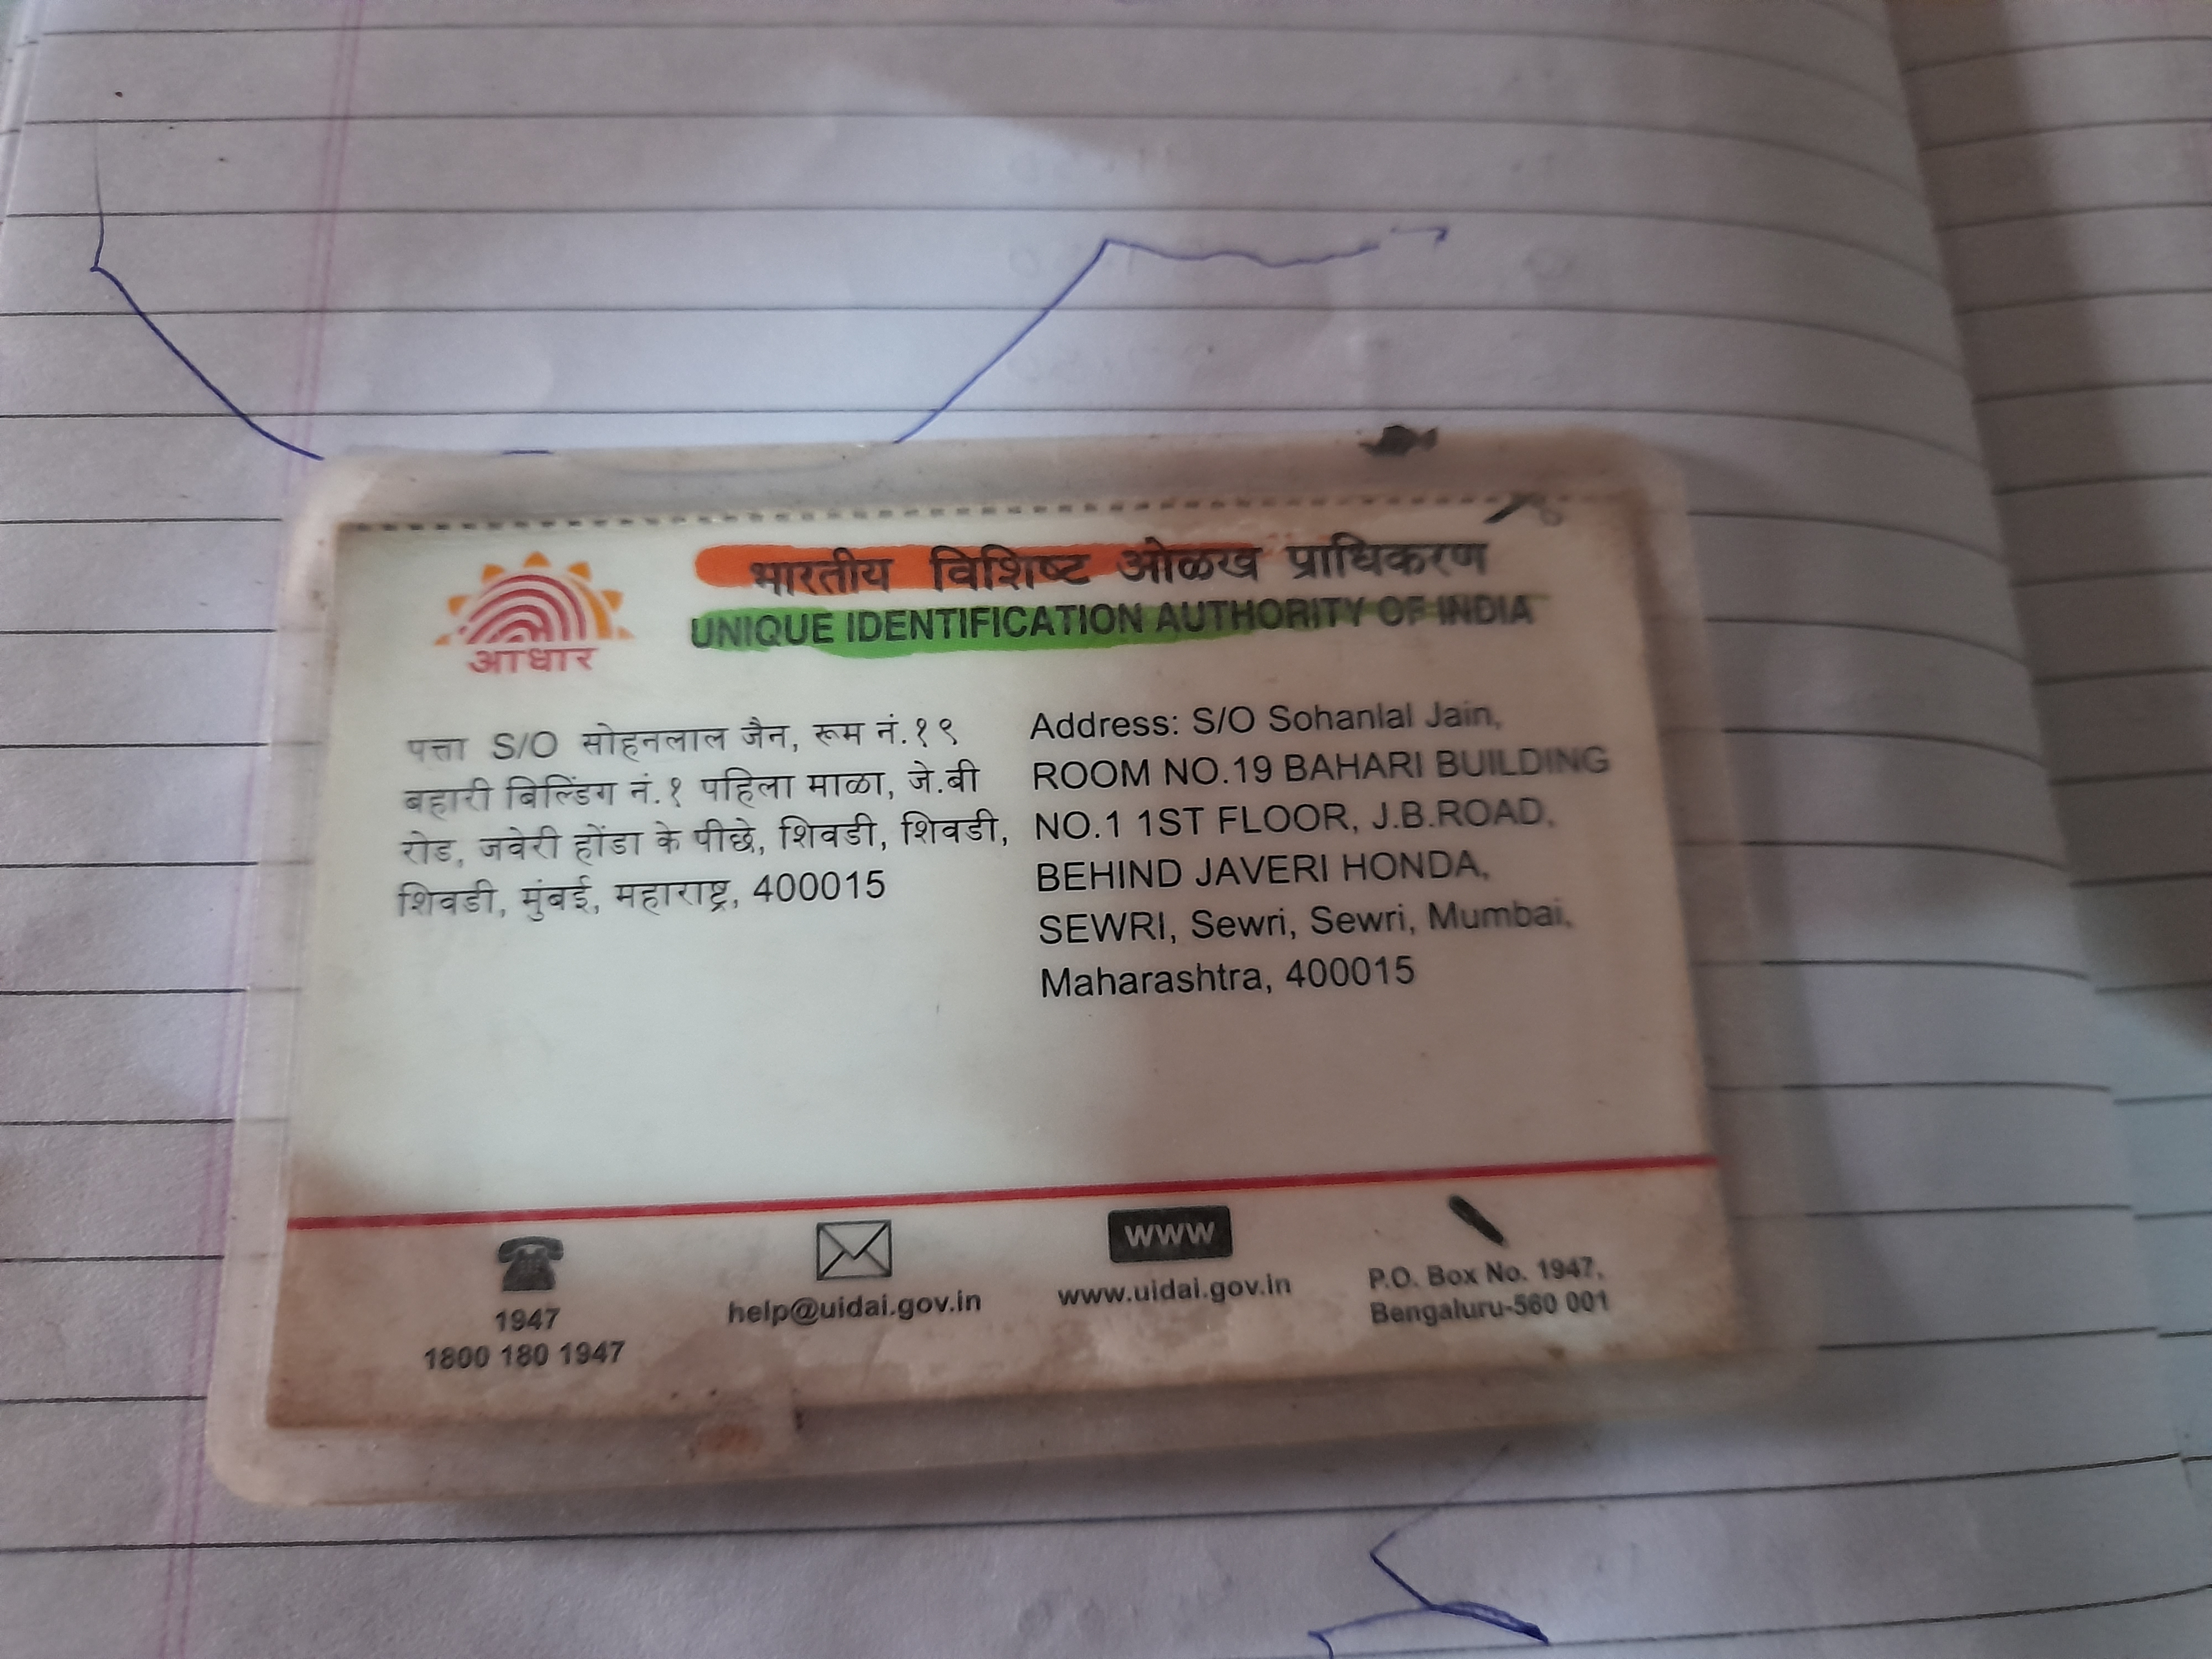 भारतीय विशिष्ट ओळख प्राधिकरण
UNIQUE IDENTIFICATION AUTHORITY OF INDIA
आधार
पत्ता S/O सोहनलाल जैन, रूम नं.१९
बहारी बिल्डिंग नं.१ पहिला माळा, जे.बी
रोड, जवेरी होंडा के पीछे, शिवडी, शिवडी,
शिवडी, मुंबई, महाराष्ट्र, 400015
Address: S/O Sohanlal Jain,
ROOM NO.19 BAHARI BUILDING
NO.1 1ST FLOOR, J.B.ROAD,
BEHIND JAVERI HONDA,
SEWRI, Sewri, Sewri, Mumbai,
Maharashtra, 400015
1947
1800 180 1947
help@uidai.gov.in
www
www.uidai.gov.in
P.O. Box No. 1947,
Bengaluru-560 001